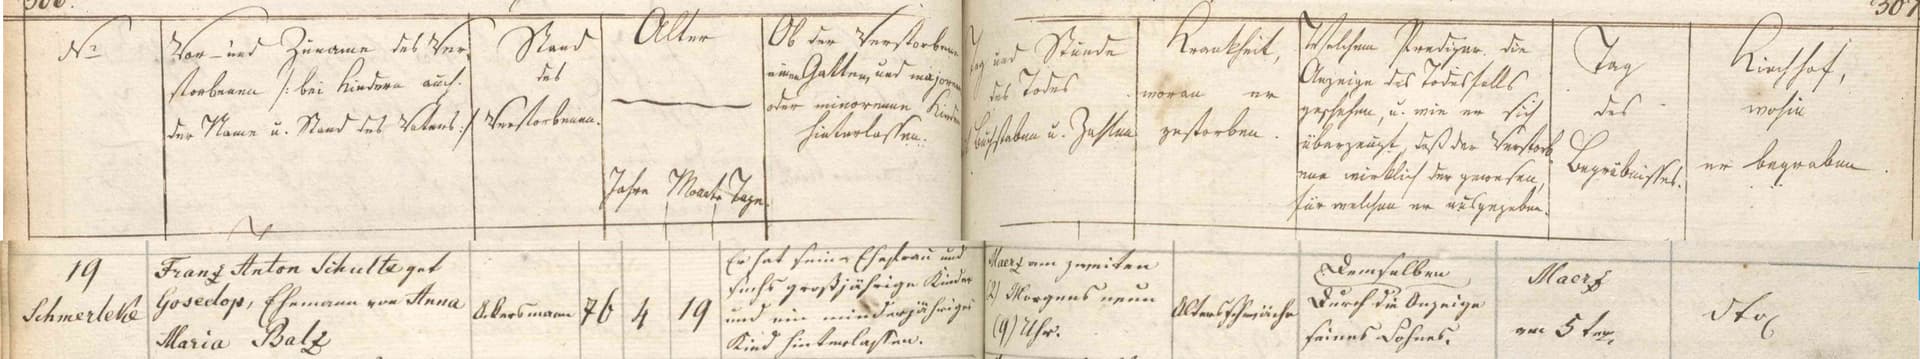 306.
307
No
Vor- und Zuname des Ver-
storbenen /: bei Kindern auch
der Name u. Stand des Vaters :/
Stand
des
Verstorbenen.
Alter
Jahre Monate Tage.
Ob der Verstorbene
einen Gatten, und majorenne
oder minorenne Kinder
hinterlassen.
Tag und Stunde
des Todes
Buchstaben u. Zahlen
Krankheit,
woran er
gestorben.
Welchem Prediger die
Anzeige des Todesfalls
geschehen, u. wie er sich
überzeugt, daß der Verstorb
ene wirklich der gewesen,
für welchen er ausgegeben.
Tag
des
Begräbnisses.
Kirchhof,
wohin
er begraben.
19
Schmerleke
Franz Anton Schulte gnt
Gosedop, Ehemann von Anna
Maria Balz
Ackersmann
76
4
19
Er hat seine Ehefrau und
sechs großjährige Kinder
und ein minderjähriges
Kind hinterlassen.
Maerz am zweiten
(2) Morgens neun
(9) Uhr.
Altersschwäche
Demselben
Durch die Anzeige
seines Sohnes.
Maerz
am 5ten
dto